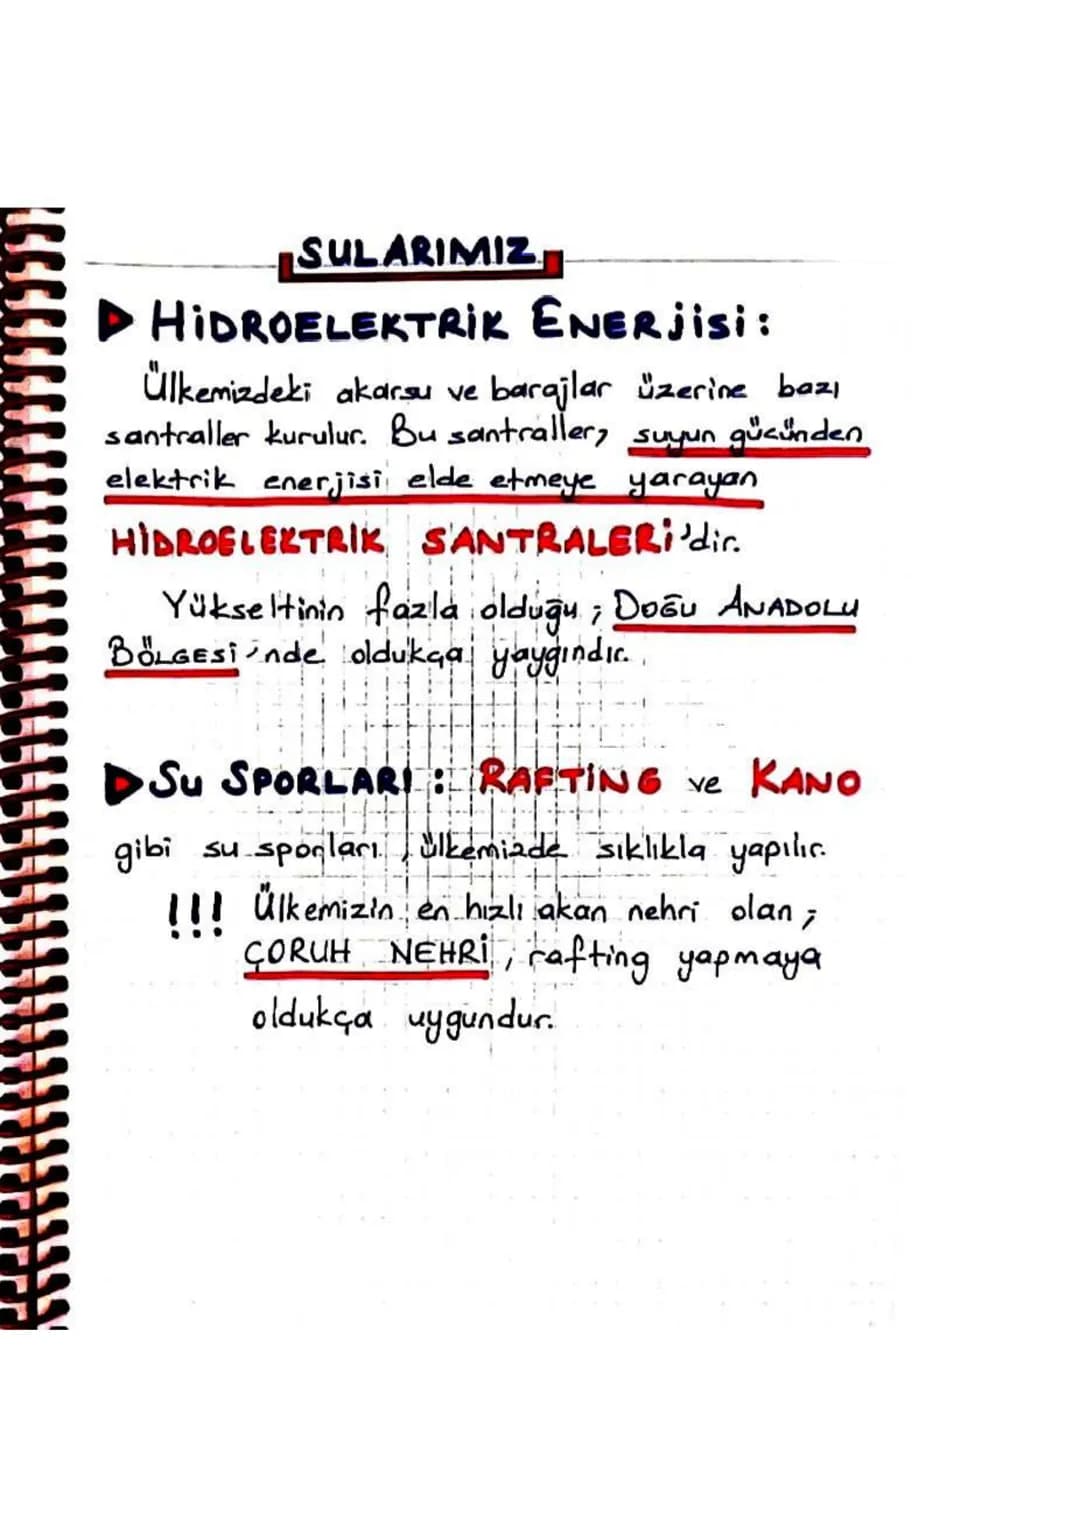 SULARIMIZ
HİDROELEKTRİK ENERJİSİ:
Ülkemizdeki akarsu ve barajlar üzerine bazı
santraller kurulur. Bu santraller, suyun gücünden
elektrik enerjisi elde etmeye yarayan
HİDROELEKTRİK SANTRALERİ'dir.
Yükseltinin fazla olduğu; DOĞU ANADOLU
BÖLGESİ'nde oldukça yaygındır.
SU SPORLARI: RAFTİNG ve KANO
gibi su sporları, ülkemizde sıklıkla yapılır.
!!! Ülkemizin en hızlı akan nehri olan;
ÇORUH NEHRİ, rafting yapmaya
oldukça uygundur.